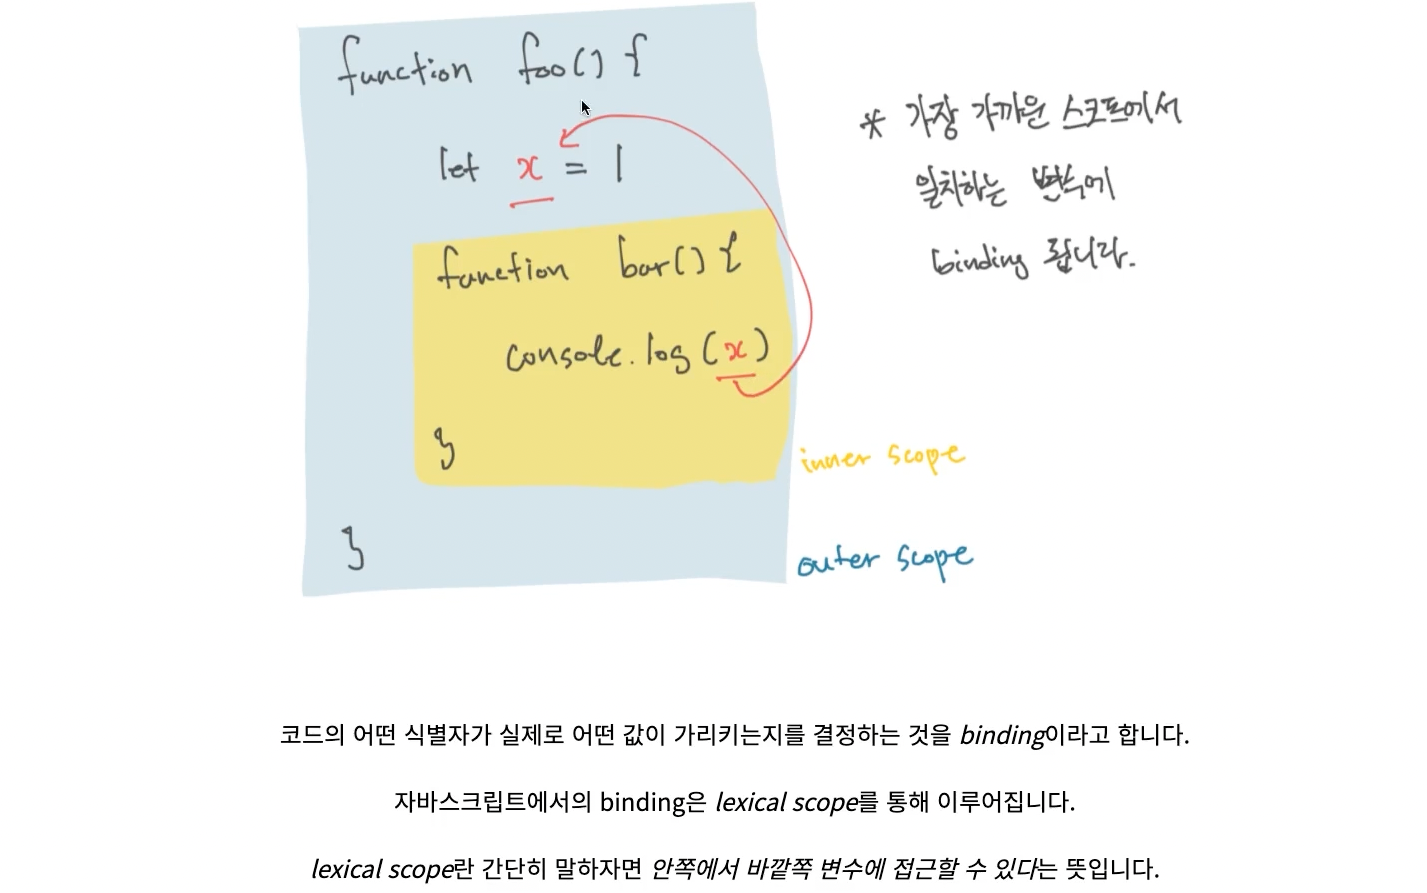 function foo() {
let x = 1
function bar() {
console.log(x)
}
}
* 가장 가까운 스코프에서
일치하는 변수에
binding 됩니다.
inner scope
outer scope
코드의 어떤 식별자가 실제로 어떤 값이 가리키는지를 결정하는 것을 binding이라고 합니다.
자바스크립트에서의 binding은 lexical scope를 통해 이루어집니다.
lexical scope란 간단히 말하자면 안쪽에서 바깥쪽 변수에 접근할 수 있다는 뜻입니다.